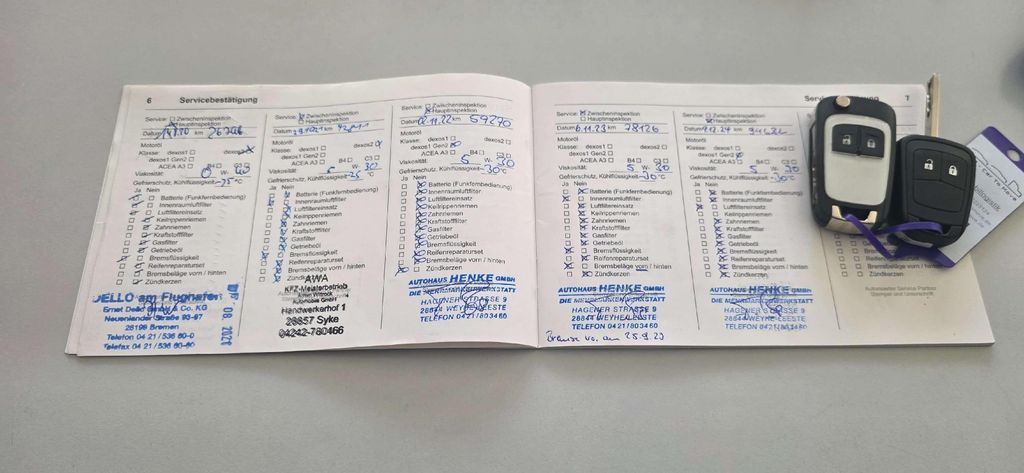 6 Servicebestätigung
Service: Zwischeninspektion
Hauptinspektion
Datum km 26766
Motoröl
Klasse: dexos1 dexos2
dexos1 Gen2
ACEA A3 B4 C3
Viskosität: W-
Gefrierschutz, Kühlflüssigkeit -25 °C
Ja Nein
Batterie (Funkfernbedienung)
Innenraumluftfilter
Luftfiltereinsatz
Keilrippenriemen
Zahnriemen
Kraftstofffilter
Gasfilter
Getriebeöl
Bremsflüssigkeit
Reifenreparaturset
Bremsbeläge vorn / hinten
Zündkerzen
DELLO am Flughafen
Ernst Dello GmbH & Co. KG
Neuenlander Straße 93-97
28199 Bremen
Telefon 04 21 / 536 80-0
Telefax 04 21 / 536 80-60
08 2021
Service: Zwischeninspektion
Hauptinspektion
Datum km
Motoröl
Klasse: dexos1 dexos2
dexos1 Gen2
ACEA A3 B4 C3
Viskosität: 5 W- 30
Gefrierschutz, Kühlflüssigkeit -25 °C
Ja Nein
Batterie (Funkfernbedienung)
Innenraumluftfilter
Luftfiltereinsatz
Keilrippenriemen
Zahnriemen
Kraftstofffilter
Gasfilter
Getriebeöl
Bremsflüssigkeit
Reifenreparaturset
Bremsbeläge vorn / hinten
Zündkerzen
AWA
KFZ-Meisterbetrieb
Handwerkerhof 1
28857 Syke
04242-780466
Service: Zwischeninspektion
Hauptinspektion
Datum 02.11.22 km 59270
Motoröl
Klasse: dexos1 dexos2
dexos1 Gen2
ACEA A3 B4 C3
Viskosität: 5 W- 30
Gefrierschutz, Kühlflüssigkeit -30 °C
Ja Nein
Batterie (Funkfernbedienung)
Innenraumluftfilter
Luftfiltereinsatz
Keilrippenriemen
Zahnriemen
Kraftstofffilter
Gasfilter
Getriebeöl
Bremsflüssigkeit
Reifenreparaturset
Bremsbeläge vorn / hinten
Zündkerzen
AUTOHAUS HENKE GMBH
DIE MEHRMARKENWERKSTATT
HAGENER STRASSE 9
28844 WEYHE-LEESTE
TELEFON 0421/803460
Service: Zwischeninspektion
Hauptinspektion
Datum 6.11.23 km 78126
Motoröl
Klasse: dexos1 dexos2
dexos1 Gen2
ACEA A3 B4 C3
Viskosität: 5 W- 30
Gefrierschutz, Kühlflüssigkeit -30 °C
Ja Nein
Batterie (Funkfernbedienung)
Innenraumluftfilter
Luftfiltereinsatz
Keilrippenriemen
Zahnriemen
Kraftstofffilter
Gasfilter
Getriebeöl
Bremsflüssigkeit
Reifenreparaturset
Bremsbeläge vorn / hinten
Zündkerzen
AUTOHAUS HENKE GMBH
DIE MEHRMARKENWERKSTATT
HAGENER STRASSE 9
28844 WEYHE-LEESTE
TELEFON 0421/803460
Bremse vo. am 25.9.23
7
Service: Zwischeninspektion
Hauptinspektion
Datum 9.12.24 km
Motoröl
Klasse: dexos1 dexos2
dexos1 Gen2
ACEA A3 B4 C3
Viskosität: 5 W- 30
Gefrierschutz, Kühlflüssigkeit -30 °C
Ja Nein
Batterie (Funkfernbedienung)
Innenraumluftfilter
Luftfiltereinsatz
Keilrippenriemen
Zahnriemen
Kraftstofffilter
Gasfilter
Getriebeöl
Bremsflüssigkeit
Reifenreparaturset
Bremsbeläge vorn / hinten
Zündkerzen
AUTOHAUS HENKE GMBH
DIE MEHRMARKENWERKSTATT
HAGENER STRASSE 9
28844 WEYHE-LEESTE
TELEFON 0421/803460
Reifenreparaturset
Bremsbeläge vorn / hinten
Zündkerzen
Autorisierter Service Partner
Stempel und Unterschrift